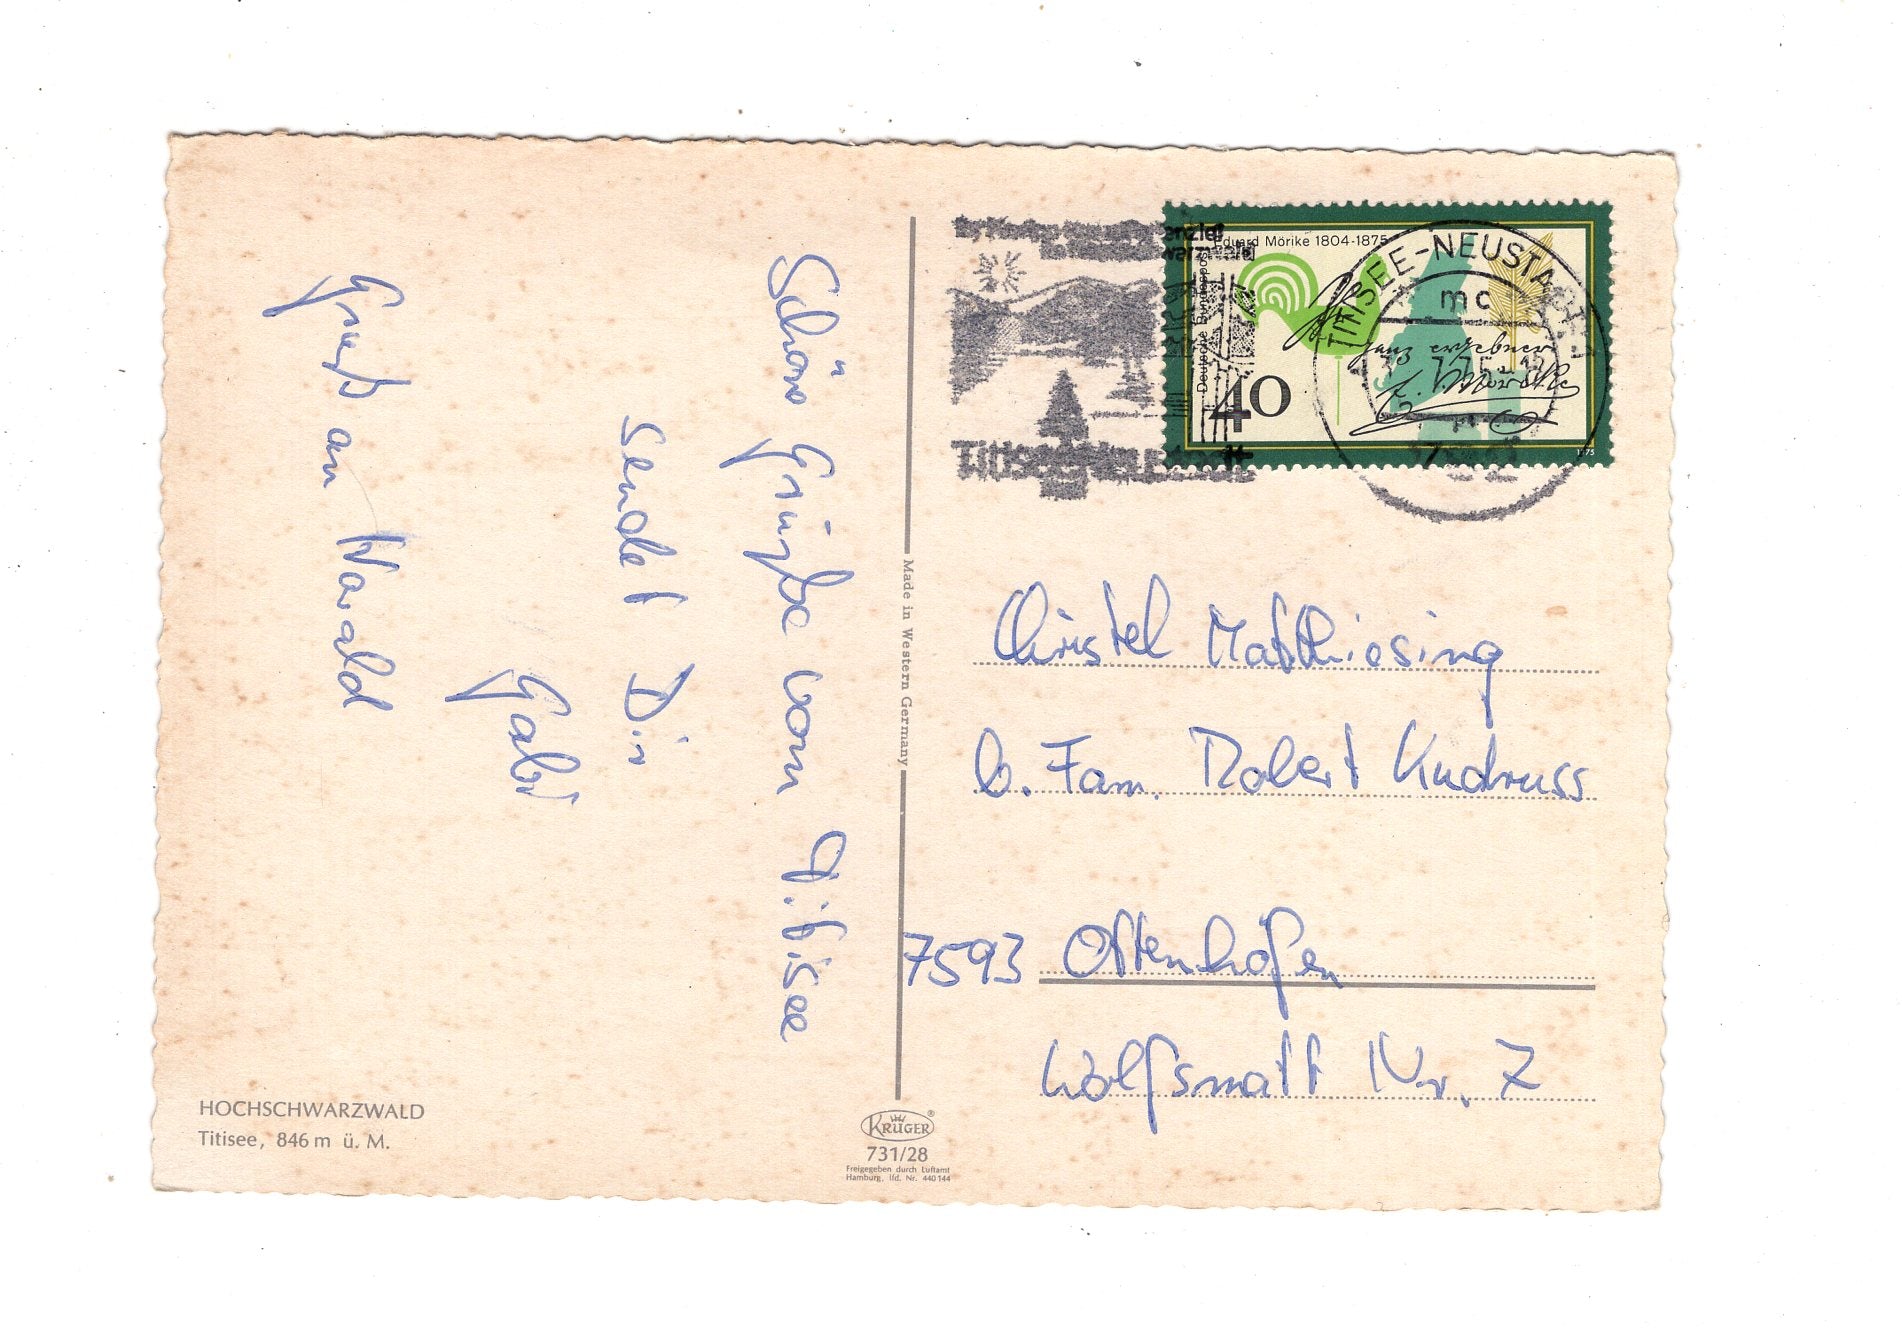 Schöne Grüße vom Titisee
sendet Dir
Gabi
Gruß an Harald
HOCHSCHWARZWALD
Titisee, 846 m ü. M.
Made in Western Germany
KRÜGER
731/28
Freigegeben durch Luftamt
Hamburg, lfd. Nr. 440144
Eduard Mörike 1804-1875
Deutsche Bundespost
40
ganz ergebner
E. Mörike
1975
TITISEE-NEUSTADT 1
mc
Titisee-Neustadt
Christel Matthiesing
b. Fam. Robert Kudruss
7593 Ottenhöfen
Wolfsmatt Nr. 7